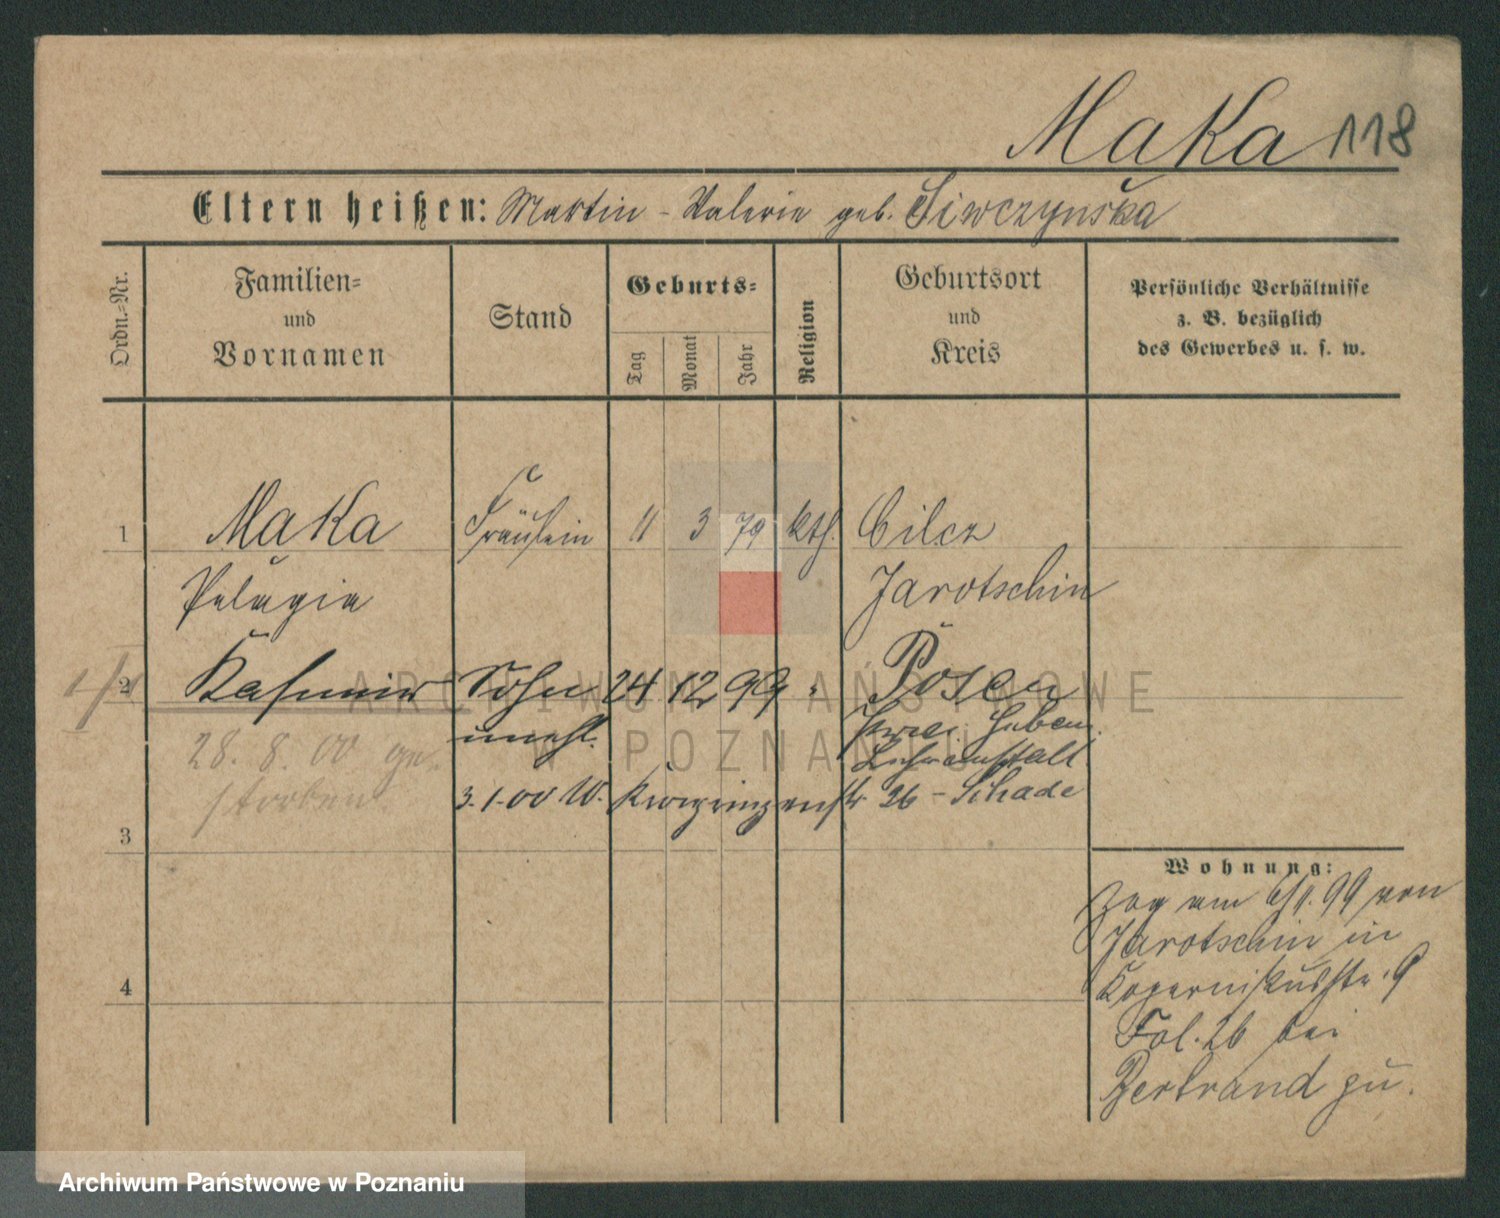 Maka 118
Eltern heißen: Martin - Valerie geb. Siwczyńska
Ordn.-Nr.
Familien-
und
Vornamen
Stand
Geburts-
Tag
Monat
Jahr
Religion
Geburtsort
und
Kreis
Persönliche Verhältnisse
z. B. bezüglich
des Gewerbes u. s. w.
1 Maka Fräulein 11 3 79 kth. Cilcz
Pelagia Jarotschin
2 Kasimir Sohn 24 12 99 Posen
unehl. Heben.
28. 8. 00 ge- Lehranstalt
storben 3.1.00 W. Kronprinzenstr. 26 - Schade
3
4
Wohnung:
Zog am 99 von
Jarotschin in
Kopernikusstr. 9
Fol. 26 bei
Bertrand zu.
ARCHIWUM PAŃSTWOWE
W POZNANIU
Archiwum Państwowe w Poznaniu